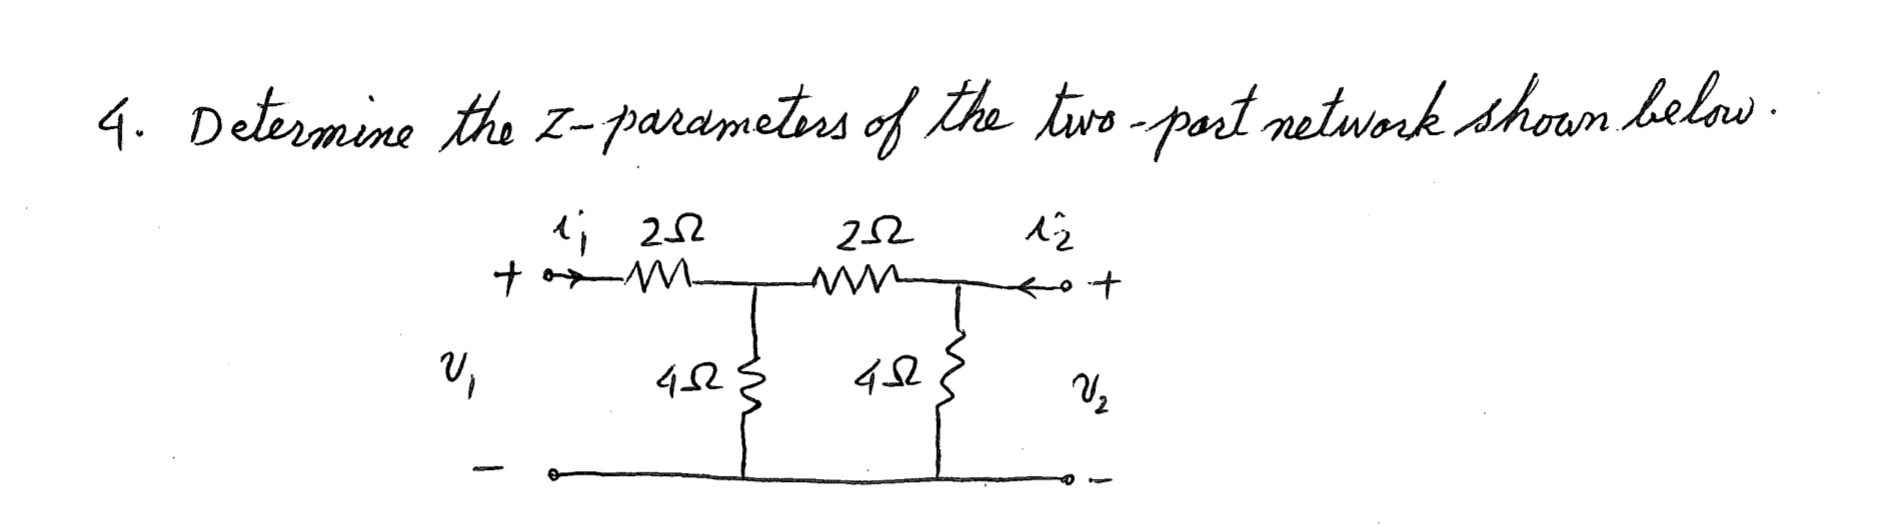 4. Determine the z-parameters of the two-port network shown below.
i₁ 2Ω 2Ω i₂
+ +
v₁ 4Ω 4Ω v₂
- -